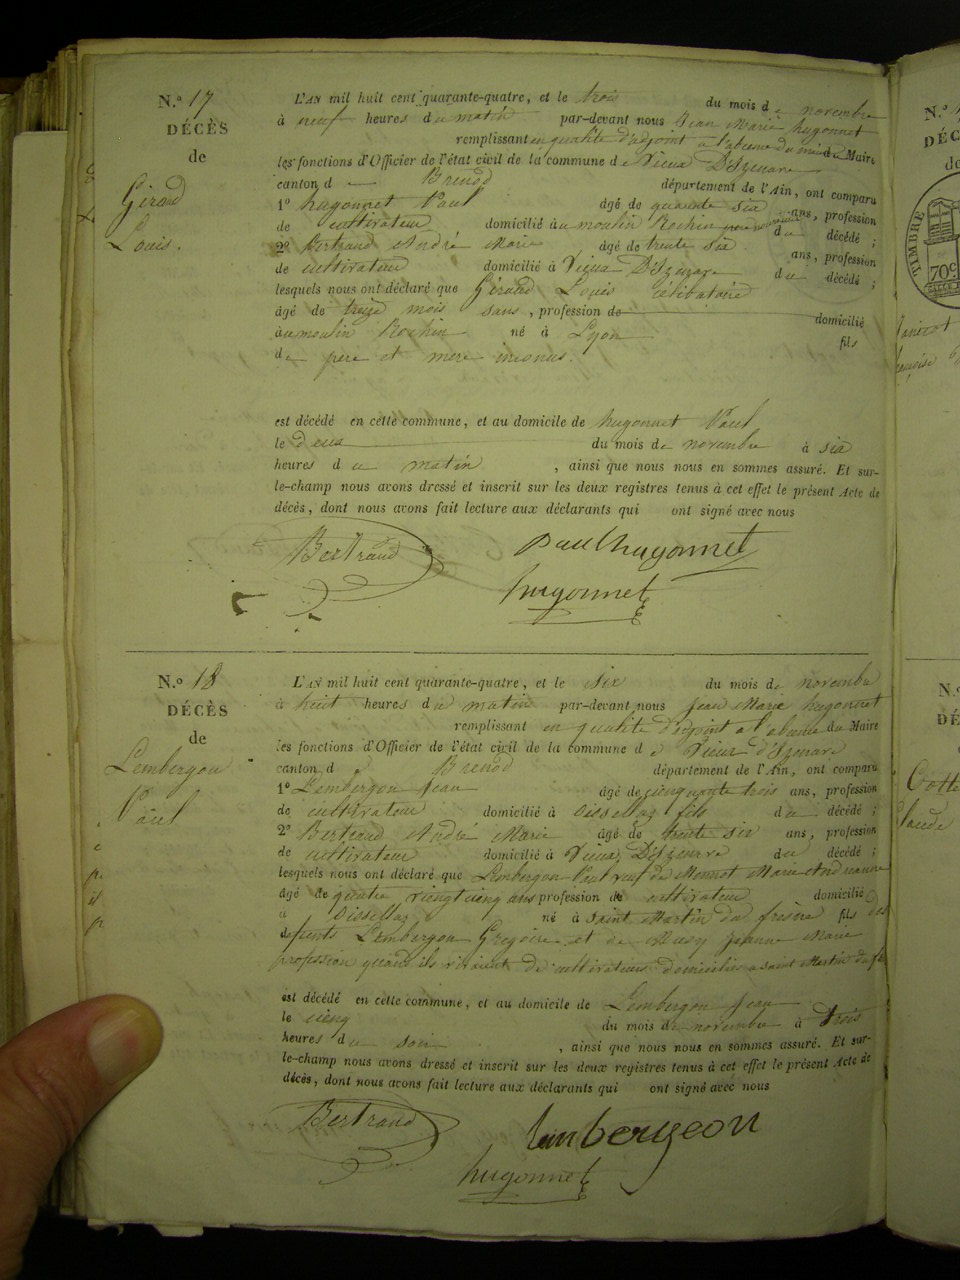 N.º 17
DÉCÈS
de
Giraud
Louis.
L'AN mil huit cent quarante-quatre, et le trois du mois de novembre
à neuf heures du matin par-devant nous Jean Marie hugonnet
remplissant en qualité d'adjoint a l'absence du maire Maire
les fonctions d'Officier de l'état civil de la commune de Vieux D'Izenave
canton d Brenod département de l'Ain, ont comparu
1º hugonnet Paul âgé de quarante six ans, profession
de cultivateur domicilié au moulin Rochin du décédé ;
2º Bertrand André Marie âgé de trente six ans, profession
de cultivateur domicilié à Vieux D'Izenave du décédé ;
lesquels nous ont déclaré que Giraud Louis célibataire
âgé de treize mois sans, profession de domicilié
au moulin Rochin né à Lyon fils
de pere et mere inconus.
est décédé en cette commune, et au domicile de hugonnet Paul
le deux du mois de novembre à six
heures du matin, ainsi que nous nous en sommes assuré. Et sur-
le-champ nous avons dressé et inscrit sur les deux registres tenus à cet effet le présent Acte de
décès, dont nous avons fait lecture aux déclarants qui ont signé avec nous
Bertrand paul hugonnet
hugonnet
N.º 18
DÉCÈS
de
Lembergeon
Paul
L'AN mil huit cent quarante-quatre, et le Six du mois de novembre
à huit heures du matin par-devant nous Jean Marie hugonnet
remplissant en qualité d'adjoint a l'absence du Maire
les fonctions d'Officier de l'état civil de la commune de Vieux d'Izenave
canton d Brenod département de l'Ain, ont comparu
1º Lembergeon Jean âgé de cinquante trois ans, profession
de cultivateur domicilié à Oisselaz fils du décédé ;
2º Bertrand André Marie âgé de trente six ans, profession
de cultivateur domicilié à Vieux D'Izenave du décédé ;
lesquels nous ont déclaré que Lembergeon Paul veuf de Monnet Marie
âgé de quatre vingt cinq ans profession de cultivateur domicilié
a Oisselaz né à Saint Martin du fresne fils des
defunts Lembergeon Gregoire et de Musy Jeanne Marie
profession quand ils vivaient de cultivateurs domiciliés a saint Martin du
est décédé en cette commune, et au domicile de Lembergeon Jean
le cinq du mois de novembre à trois
heures du soir, ainsi que nous nous en sommes assuré. Et sur-
le-champ nous avons dressé et inscrit sur les deux registres tenus à cet effet le présent Acte de
décès, dont nous avons fait lecture aux déclarants qui ont signé avec nous
Bertrand lembergeon
hugonnet
N.º
TIMBRE
70c